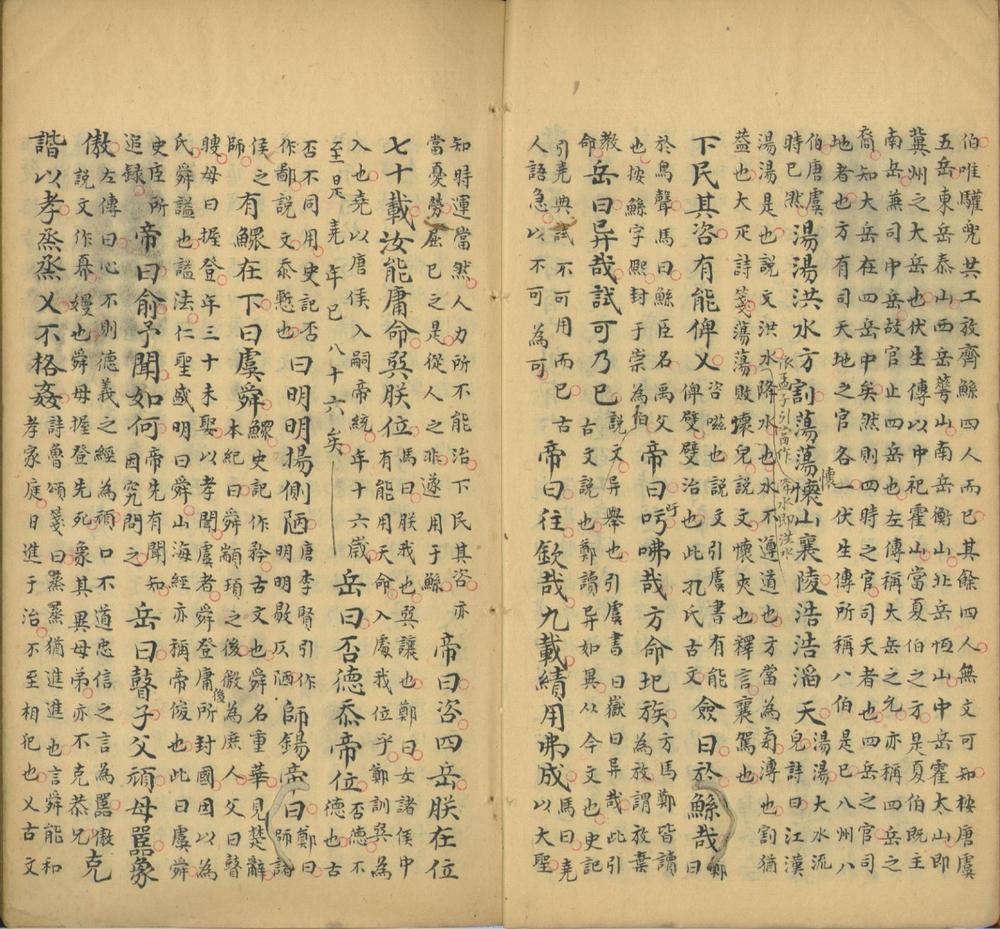 伯唯驩兜共工放齊鯀四人而已其餘四人無文可知桉唐虞
五岳東岳泰山西岳華山南岳衡山北岳恆山中岳霍太山即
冀州之大岳也伏生傳以中祀霍山當夏伯之方是夏伯既主
南岳兼司中岳故官止四岳也左傳稱大岳之允亦稱四岳之
裔知大岳在四岳中矣然則四時之官司天者也亦四岳之官司
地者也方有司天地之官各一伏生傳所稱八伯是已八州八
伯唐虞
時已然
湯湯洪水方割蕩蕩懷山襄陵浩浩滔天
湯湯大水流
皃詩曰江漢
湯湯是也說文洪水洚水也水不遵道也方當為旁溥也割猶
依孟子引當作洚水即洪水
葢也大疋詩箋蕩蕩敗壞皃說文懷夾也釋言襄駕也
下民其咨有能俾乂
咨嗞也說文引虞書有能
俾嬖嬖治也此孔氏古文
僉曰於鯀哉
鄭
曰
於鳥聲馬曰鯀臣名禹父
也按鯀字熙封于崇為伯
帝曰吁咈哉方命圮族
方馬鄭皆讀
為放謂放棄
教
命
岳曰异哉試可乃已
說文异舉也引虞書曰嶽曰异哉此引
古文說也鄭讀异如異从今文也史記
引堯典試不可用而已古
人語急以不可為可
帝曰往欽哉九載績用弗成
馬曰堯
以大聖
知時運當然人力所不能治下民其咨亦
當憂勞屈己之是從人之非遂用于鯀
帝曰咨四岳朕在位
七十載汝能庸命巽朕位
馬曰朕我也巽讓也鄭曰女諸侯中
有能用天命入處我位乎鄭訓巽為
入也堯以唐侯入嗣帝統年十六歲
至是堯年已八十六矣
岳曰否德忝帝位
否德不
德也古
否不同用史記否
作鄙說文忝慙也
曰明明揚側陋
唐李賢引作
明明敭仄陋
師鍚帝曰
鄭曰
師諸
侯之
師
有鰥在下曰虞舜
鰥史記作矜古文也舜名重華見楚辭
本紀曰舜顓頊之後微為庶人父曰瞽
瞍母曰握登年三十未娶以孝聞虞者舜登庸後所封國因以為
氏舜謚也謚法仁聖盛明曰舜山海經亦稱帝俊也此曰虞舜
史臣所
追録
帝曰俞予聞如何
帝先有聞知
因究問之
岳曰瞽子父頑母嚚象
傲
左傳曰心不則德義之經為頑口不道忠信之言為嚚傲
說文作奡嫚也舜母握登先死象其異母弟亦不克恭兄
克
諧以孝烝烝乂不格姦
詩魯頌箋曰烝烝猶進進也言舜能和
孝家庭日進于治不至相犯也乂古文